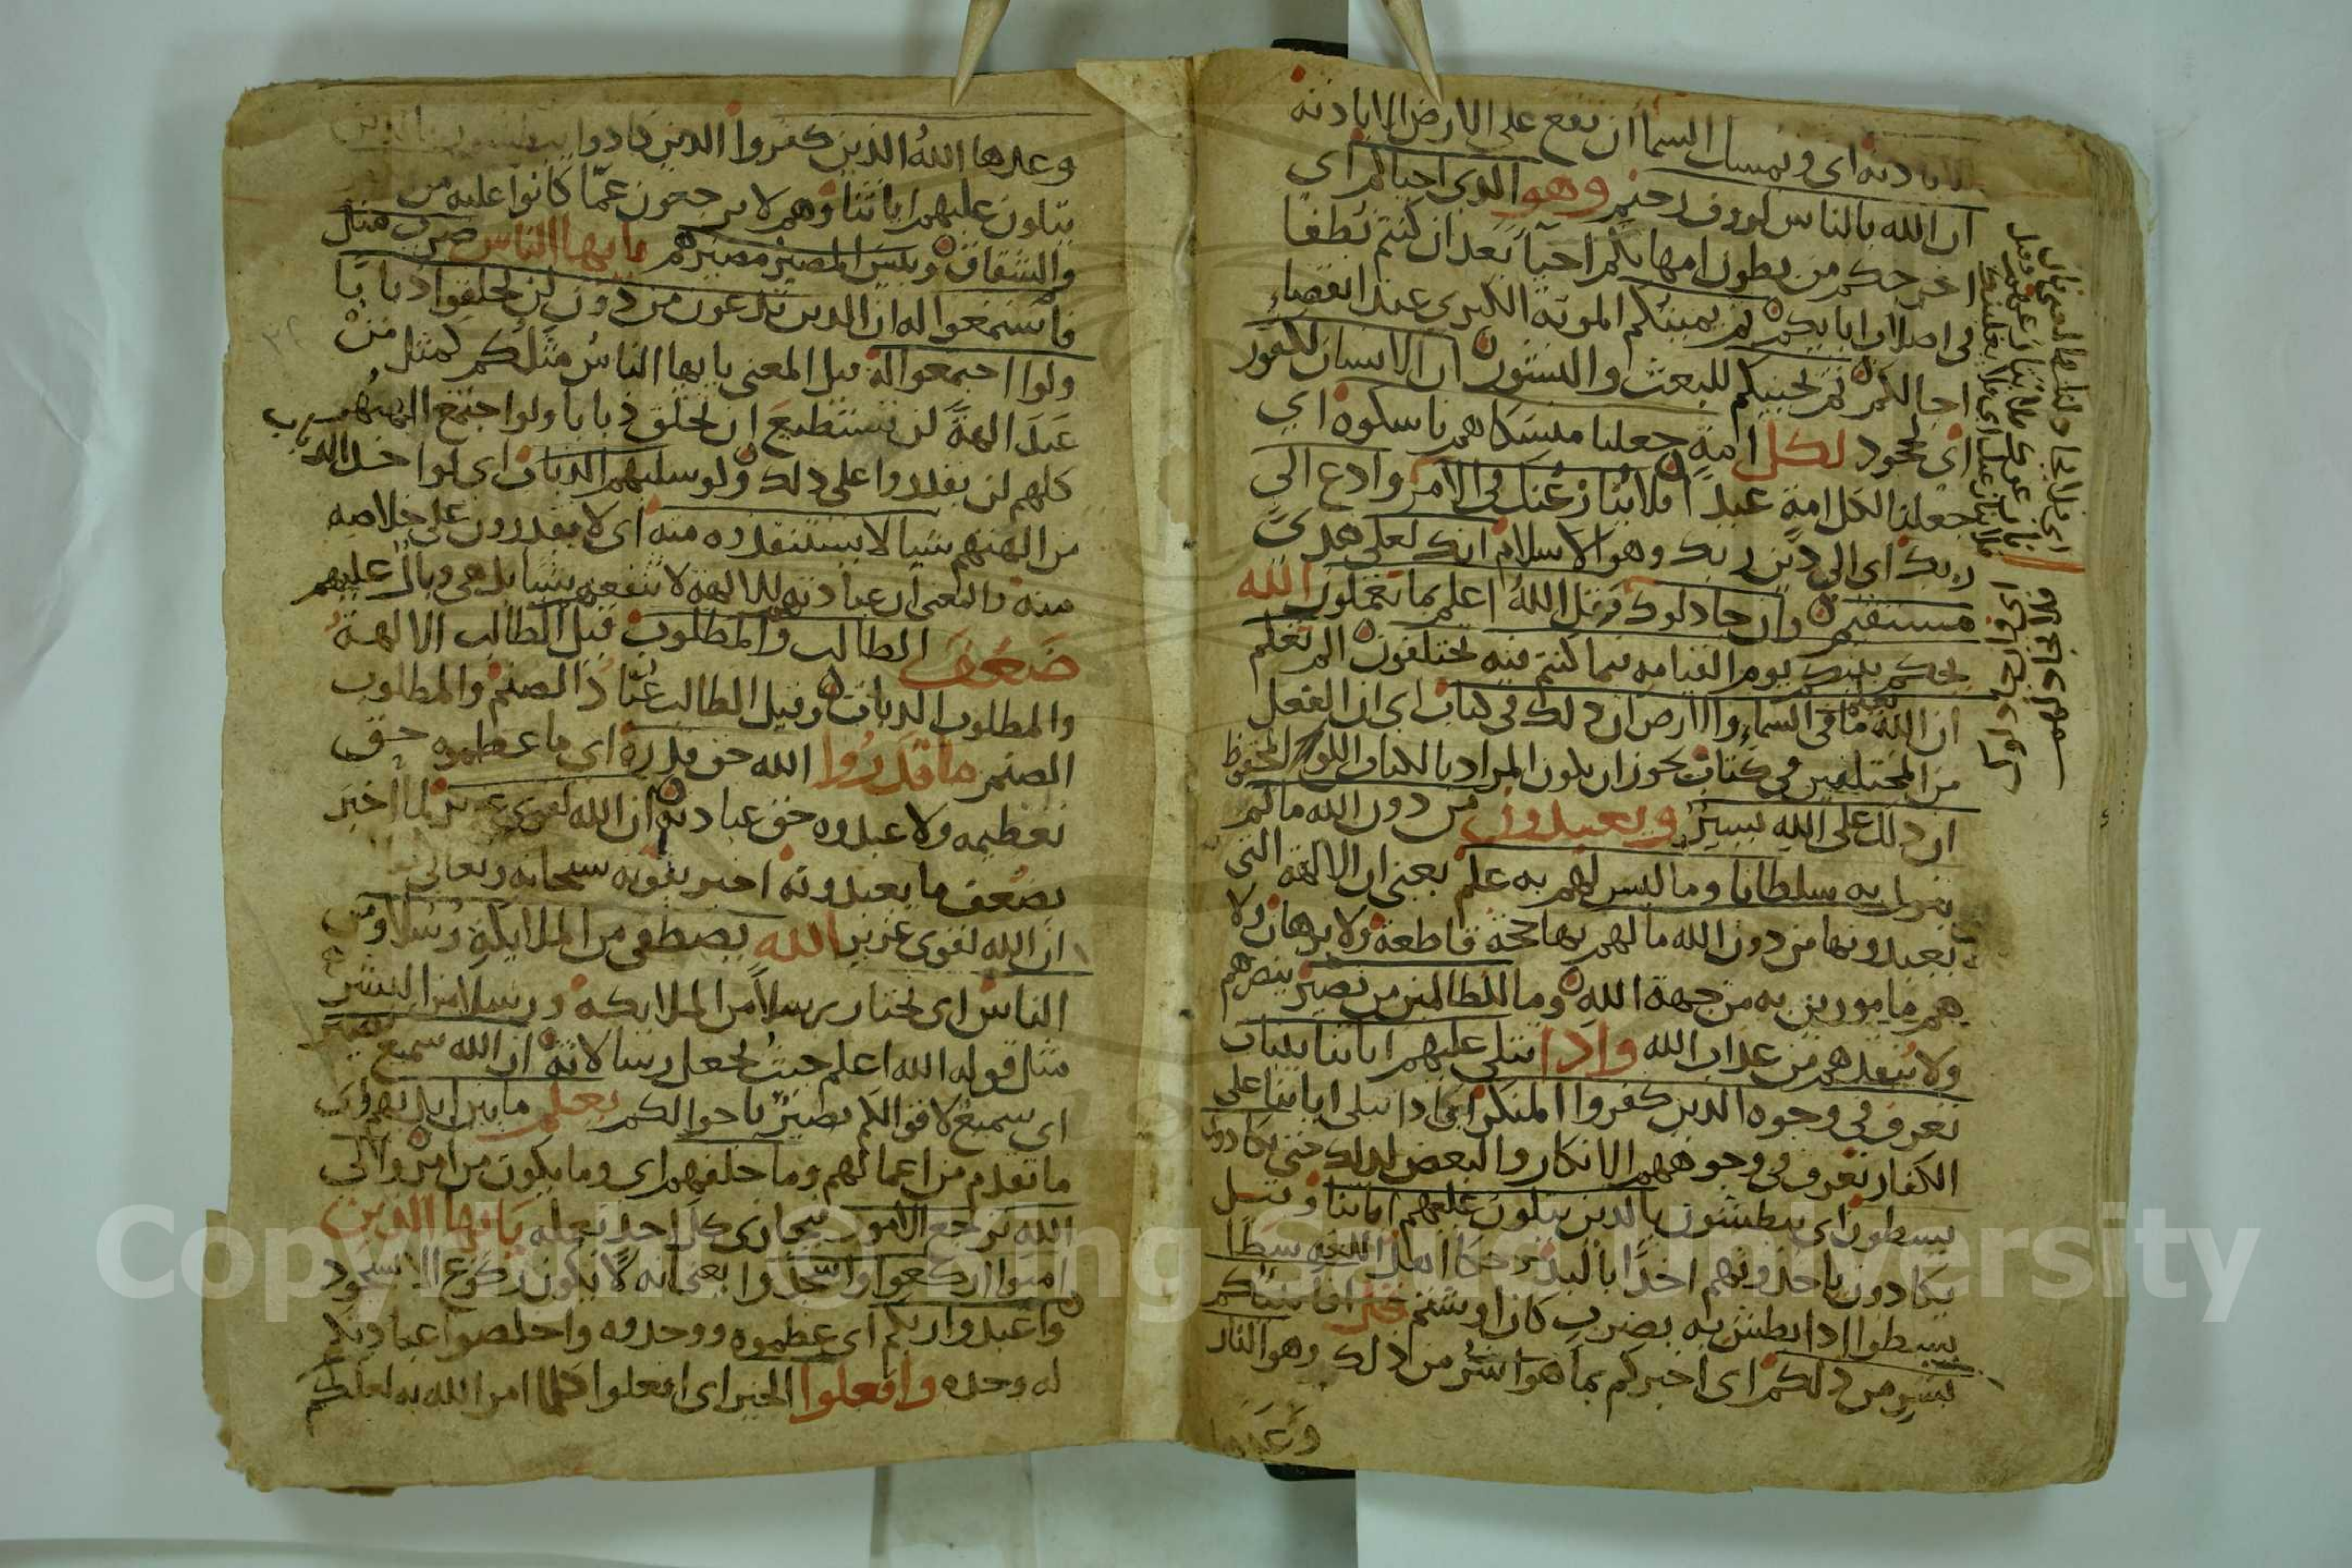 الا باذنه اى ويمسك السما ان تقع على الارض الا باذنه
ان الله بالناس لروف رحيم وهو الذى احياكم اى
اخرجكم من بطون امهاتكم احيآ بعد ان كنتم نطفا
فى اصلاب ابايكم ثم يميتكم الموته الكبرى عند انقضاء
اجالكم ثم يحييكم للبعث والنشور ان الانسان لكفور
اى لجحود لكل امةٍ جعلنا منسكا هم ناسكوه اى
جعلنا لكل امةٍ عيدا فلا ينازعنك فى الامر وادع الى
ربك اى الى دين ربك وهو الاسلام انك لعلى هدى
مستقيم وان جادلوك فقل اللهُ اعلم بما تعملون الله
يحكم بينكم يوم القيامه فيما كنتم فيه تختلفون الم تعلم
ان الله يعلم ما فى السماءِ والارض ان ذلك فى كتاب اى ان الفعل
من المختلفين فى كتاب يجوز ان يكون المراد بالكتاب اللوح المحفوظ
ان ذلك على اللهِ يسيرٌ ويعبدون من دون الله ما لم
ينزل به سلطانا وما ليس لهم به علم يعنى ان الالهة التى
يعبدونها من دون الله ما لهم بها حجة قاطعة ولا برهان ولا
هم مامورين به من جهة اللهِ وما للظالمين من نصير ينصرهم
ولا ينقذهم من عذاب الله واذا تتلى عليهم اياتنا بينات
تعرف فى وجوه الذين كفروا المنكر اى اذا تتلى اياتنا على
الكفار تعرف فى وجوههم الانكار والبغض لذلك حتى يكادون
يسطون اى يبطشون بالذين يتلون عليهم اياتنا وقيل
يكادون ياخذونهم اخذًا باليد اهل اللغه سطا
يسطوا اذا بطش به بضرب كان او شتم قل افانبئكم
بشرٍ من ذلكم اى اخبركم بما هو اشرُّ من ذلك وهو النار
وَعَدَها
اى فلا يجادلنك
وان جادلوك
وعدها اللهُ الذين كفروا الذين كادوا يبطشون بالذين
يتلون عليهم اياتنا وهم لا يرجعون عمّا كانوا عليه من
والشقاق وبئس المصير مصيرهم يايها الناس ضرب مثل
فاستمعوا له ان الذين تدعون من دون لن يخلقوا ذبابًا
ولوا اجتمعوا له قيل المعنى يايها الناسُ مثلكم كمثل مَنْ
عَبَدَ الهةً لن تستطيعَ ان تخلق ذبابا ولوا اجتمع الهتهم
كلهم لن يقدروا على ذلك ولو سلبهم الذباب اى لوا اخذ الذباب
من الهتهم شيا لا يستنقذوه منه اى لا يقدرون على خلاصه
منه والمعنى ان عبادتهم للالهة لا تنفعهم شيا بل هى وبالٌ عليهم
ضَعُفَ الطالب والمطلوب قيل الطالب الالهةُ
والمطلوب الذباب وقيل الطالب عُبّادُ الصنم والمطلوب
الصنم ما قدرُوا الله حق قدره اى ما عظموه حق
تعظيمه ولا عبدوه حق عبادته ان الله لقوى عزيز لما اخبر
بضعف ما يعبدونه اخبر بقوته سبحانه وتعالى
ان الله لقوى عزيز الله يصطفى من الملايكةِ رسلا ومن
الناس اى يختار رسلاً من الملايكه ورسلا من البشر
مثل قوله الله اعلم حيثُ يجعل رسالاته ان الله سميع بصير
اى سميعٌ لاقوالكم بصيرٌ باحوالكم يعلم ما بين ايديهم اى
ما تقدم من اعمالهم وما خلفهم اى وما يكون من امرٍ والى
الله ترجع الامور فيجازى كل احدٍ بعمله يايها الذين
امنوا اركعوا واسجدوا يعنى انه لا يكون ركوع الا بسجود
واعبدوا ربكم اى عظموه ووحدوه واخلصوا عبادتكم
له وحده وافعلوا الخير اى افعلوا كلما امر الله به لعلكم